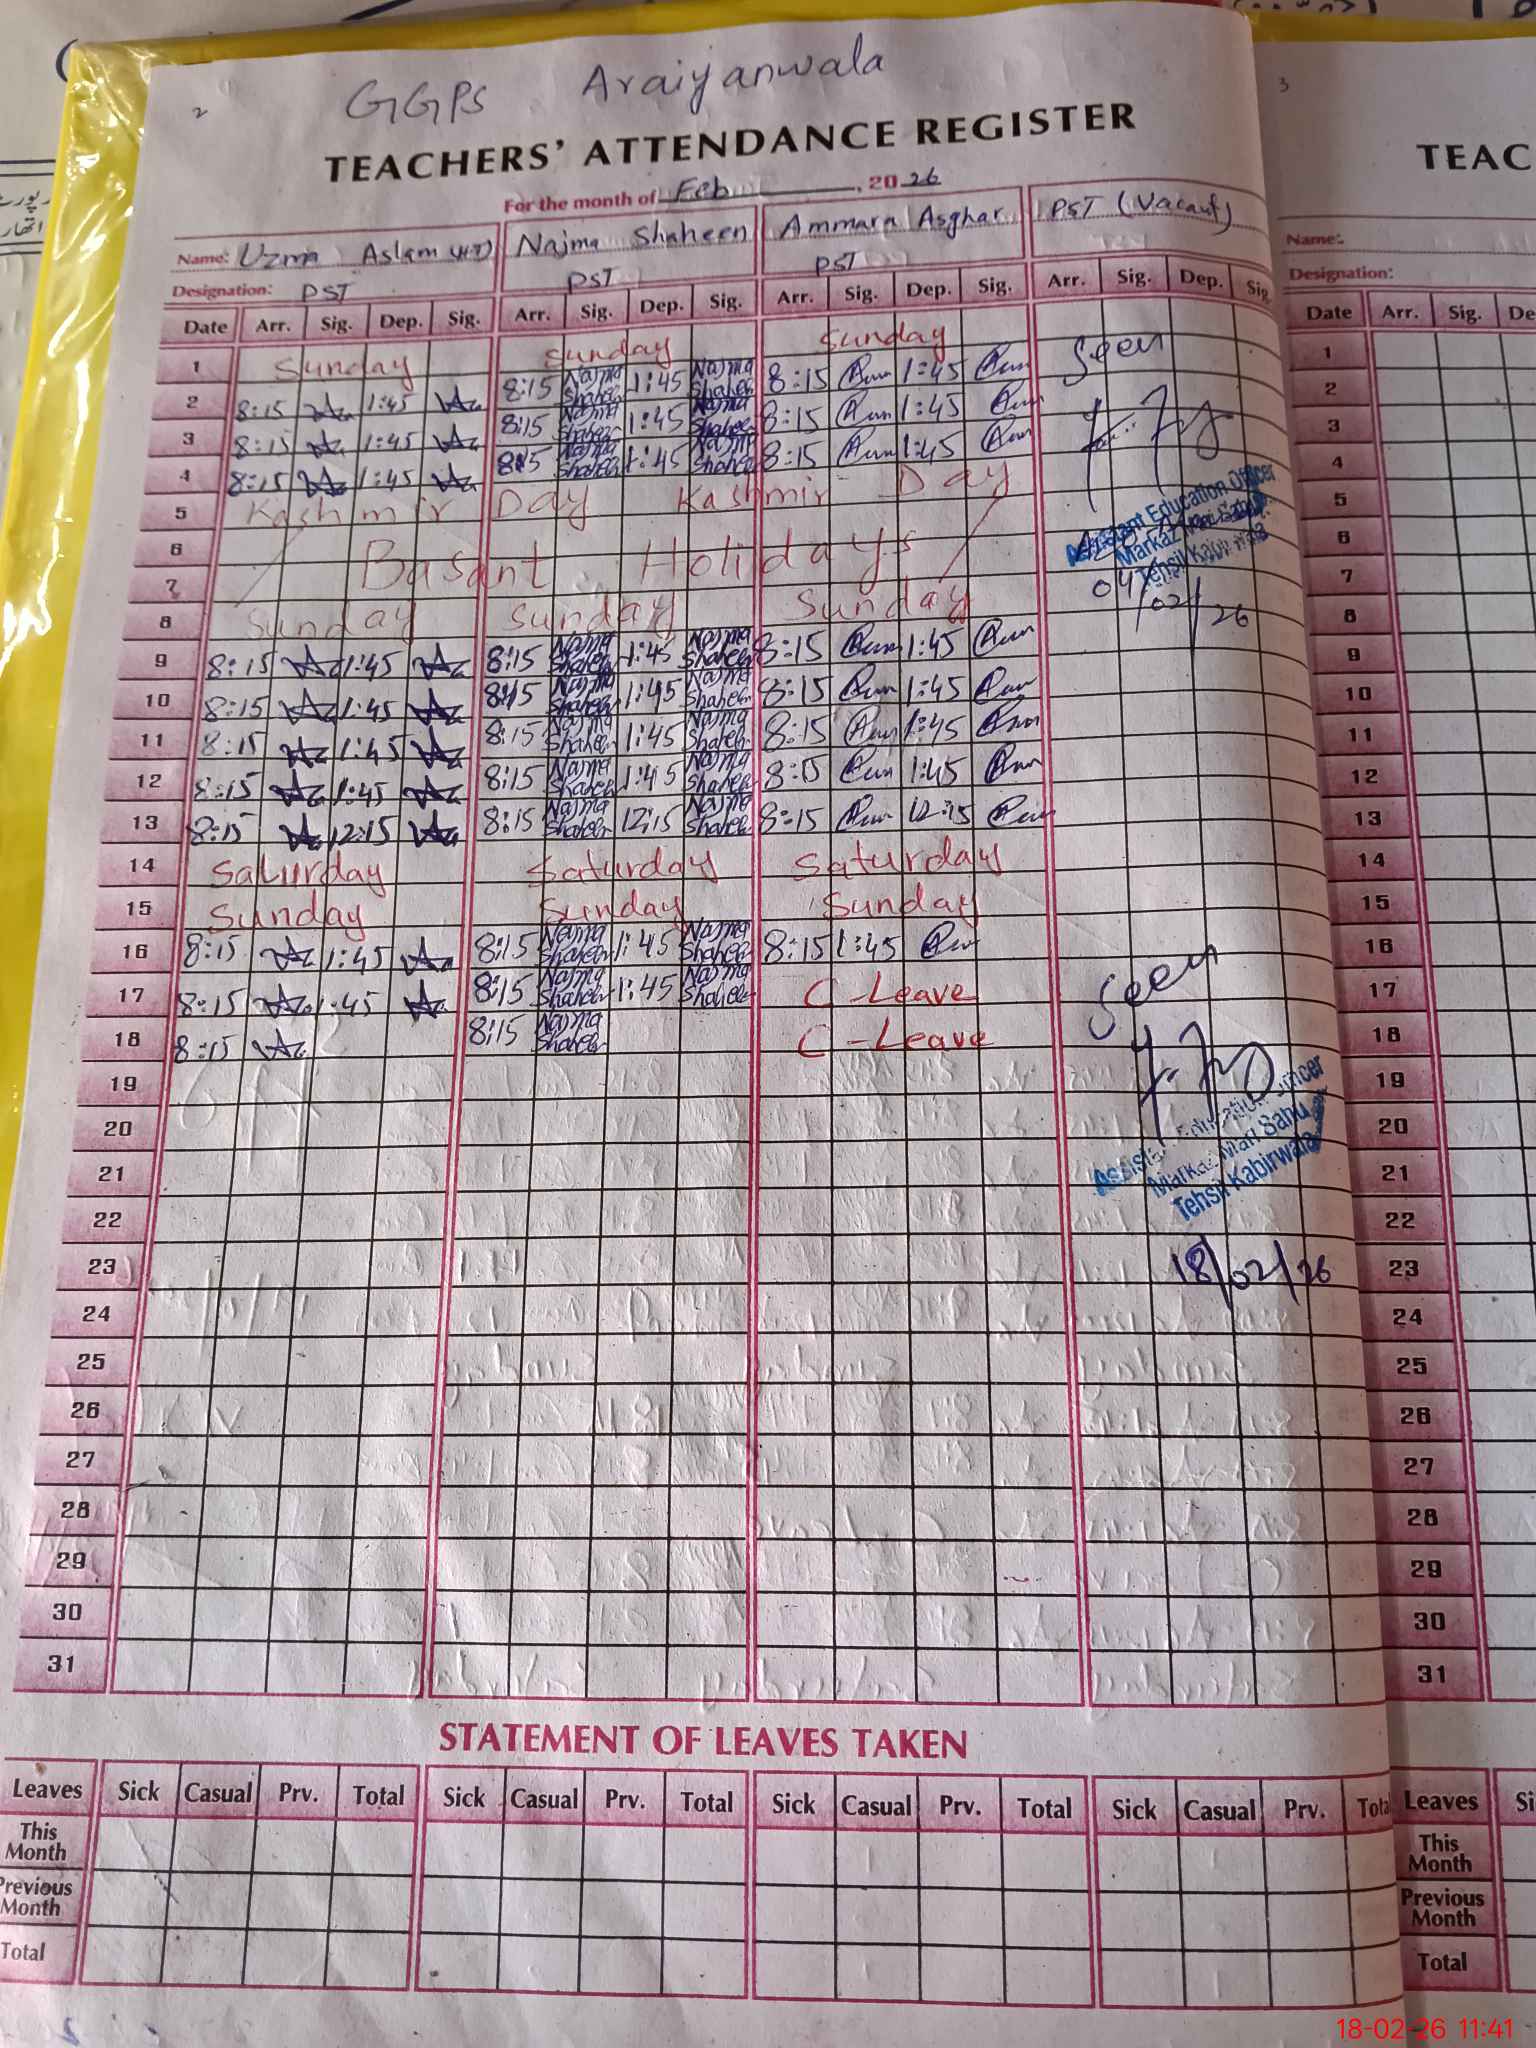 2
GGPS Araiyanwala
TEACHERS' ATTENDANCE REGISTER
For the month of Feb, 2026
Name: Uzma Aslam (HT) Najma Shaheen Ammara Asghar PST (Vacant)
Designation: PST PST PST
Date Arr. Sig. Dep. Sig. Arr. Sig. Dep. Sig. Arr. Sig. Dep. Sig. Arr. Sig. Dep. Sig.
1 Sunday Sunday Sunday Seen
2 8:15 1:45 8:15 Najma Shaheen 1:45 Najma Shaheen 8:15 1:45
3 8:15 1:45 8:15 Najma Shaheen 1:45 Najma Shaheen 8:15 1:45
4 8:15 1:45 8:15 Najma Shaheen 1:45 Najma Shaheen 8:15 1:45
5 Kashmir Day Kashmir Day
Assistant Education Officer
6 Basant Holidays
Tehsil Kabirwala
7
04/02/26
8 Sunday Sunday Sunday
9 8:15 1:45 8:15 Najma Shaheen 1:45 Najma Shaheen 8:15 1:45
10 8:15 1:45 8:15 Najma Shaheen 1:45 Najma Shaheen 8:15 1:45
11 8:15 1:45 8:15 Najma Shaheen 1:45 Najma Shaheen 8:15 1:45
12 8:15 1:45 8:15 Najma Shaheen 1:45 Najma Shaheen 8:15 1:45
13 8:15 12:15 8:15 Najma Shaheen 12:15 Najma Shaheen 8:15 12:15
14 Saturday Saturday Saturday
15 Sunday Sunday Sunday
16 8:15 1:45 8:15 Najma Shaheen 1:45 Najma Shaheen 8:15 1:45
17 8:15 1:45 8:15 Najma Shaheen 1:45 Najma Shaheen C-Leave Seen
18 8:15 8:15 Najma Shaheen C-Leave
19
20
Assistant Education Officer
21
Tehsil Kabirwala
22
23 18/02/26
24
25
26
27
28
29
30
31
STATEMENT OF LEAVES TAKEN
Leaves Sick Casual Prv. Total Sick Casual Prv. Total Sick Casual Prv. Total Sick Casual Prv. Total
This Month
Previous Month
Total
3
TEAC
Name:
Designation:
Date Arr. Sig. De
1
2
3
4
5
6
7
8
9
10
11
12
13
14
15
16
17
18
19
20
21
22
23
24
25
26
27
28
29
30
31
Leaves Si
This Month
Previous Month
Total
18-02-26 11:41